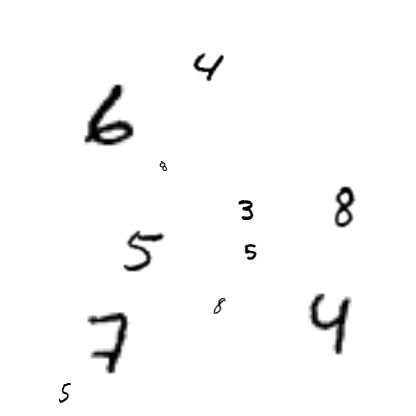 4
6
8
3 8
5 5
8 4
7
5